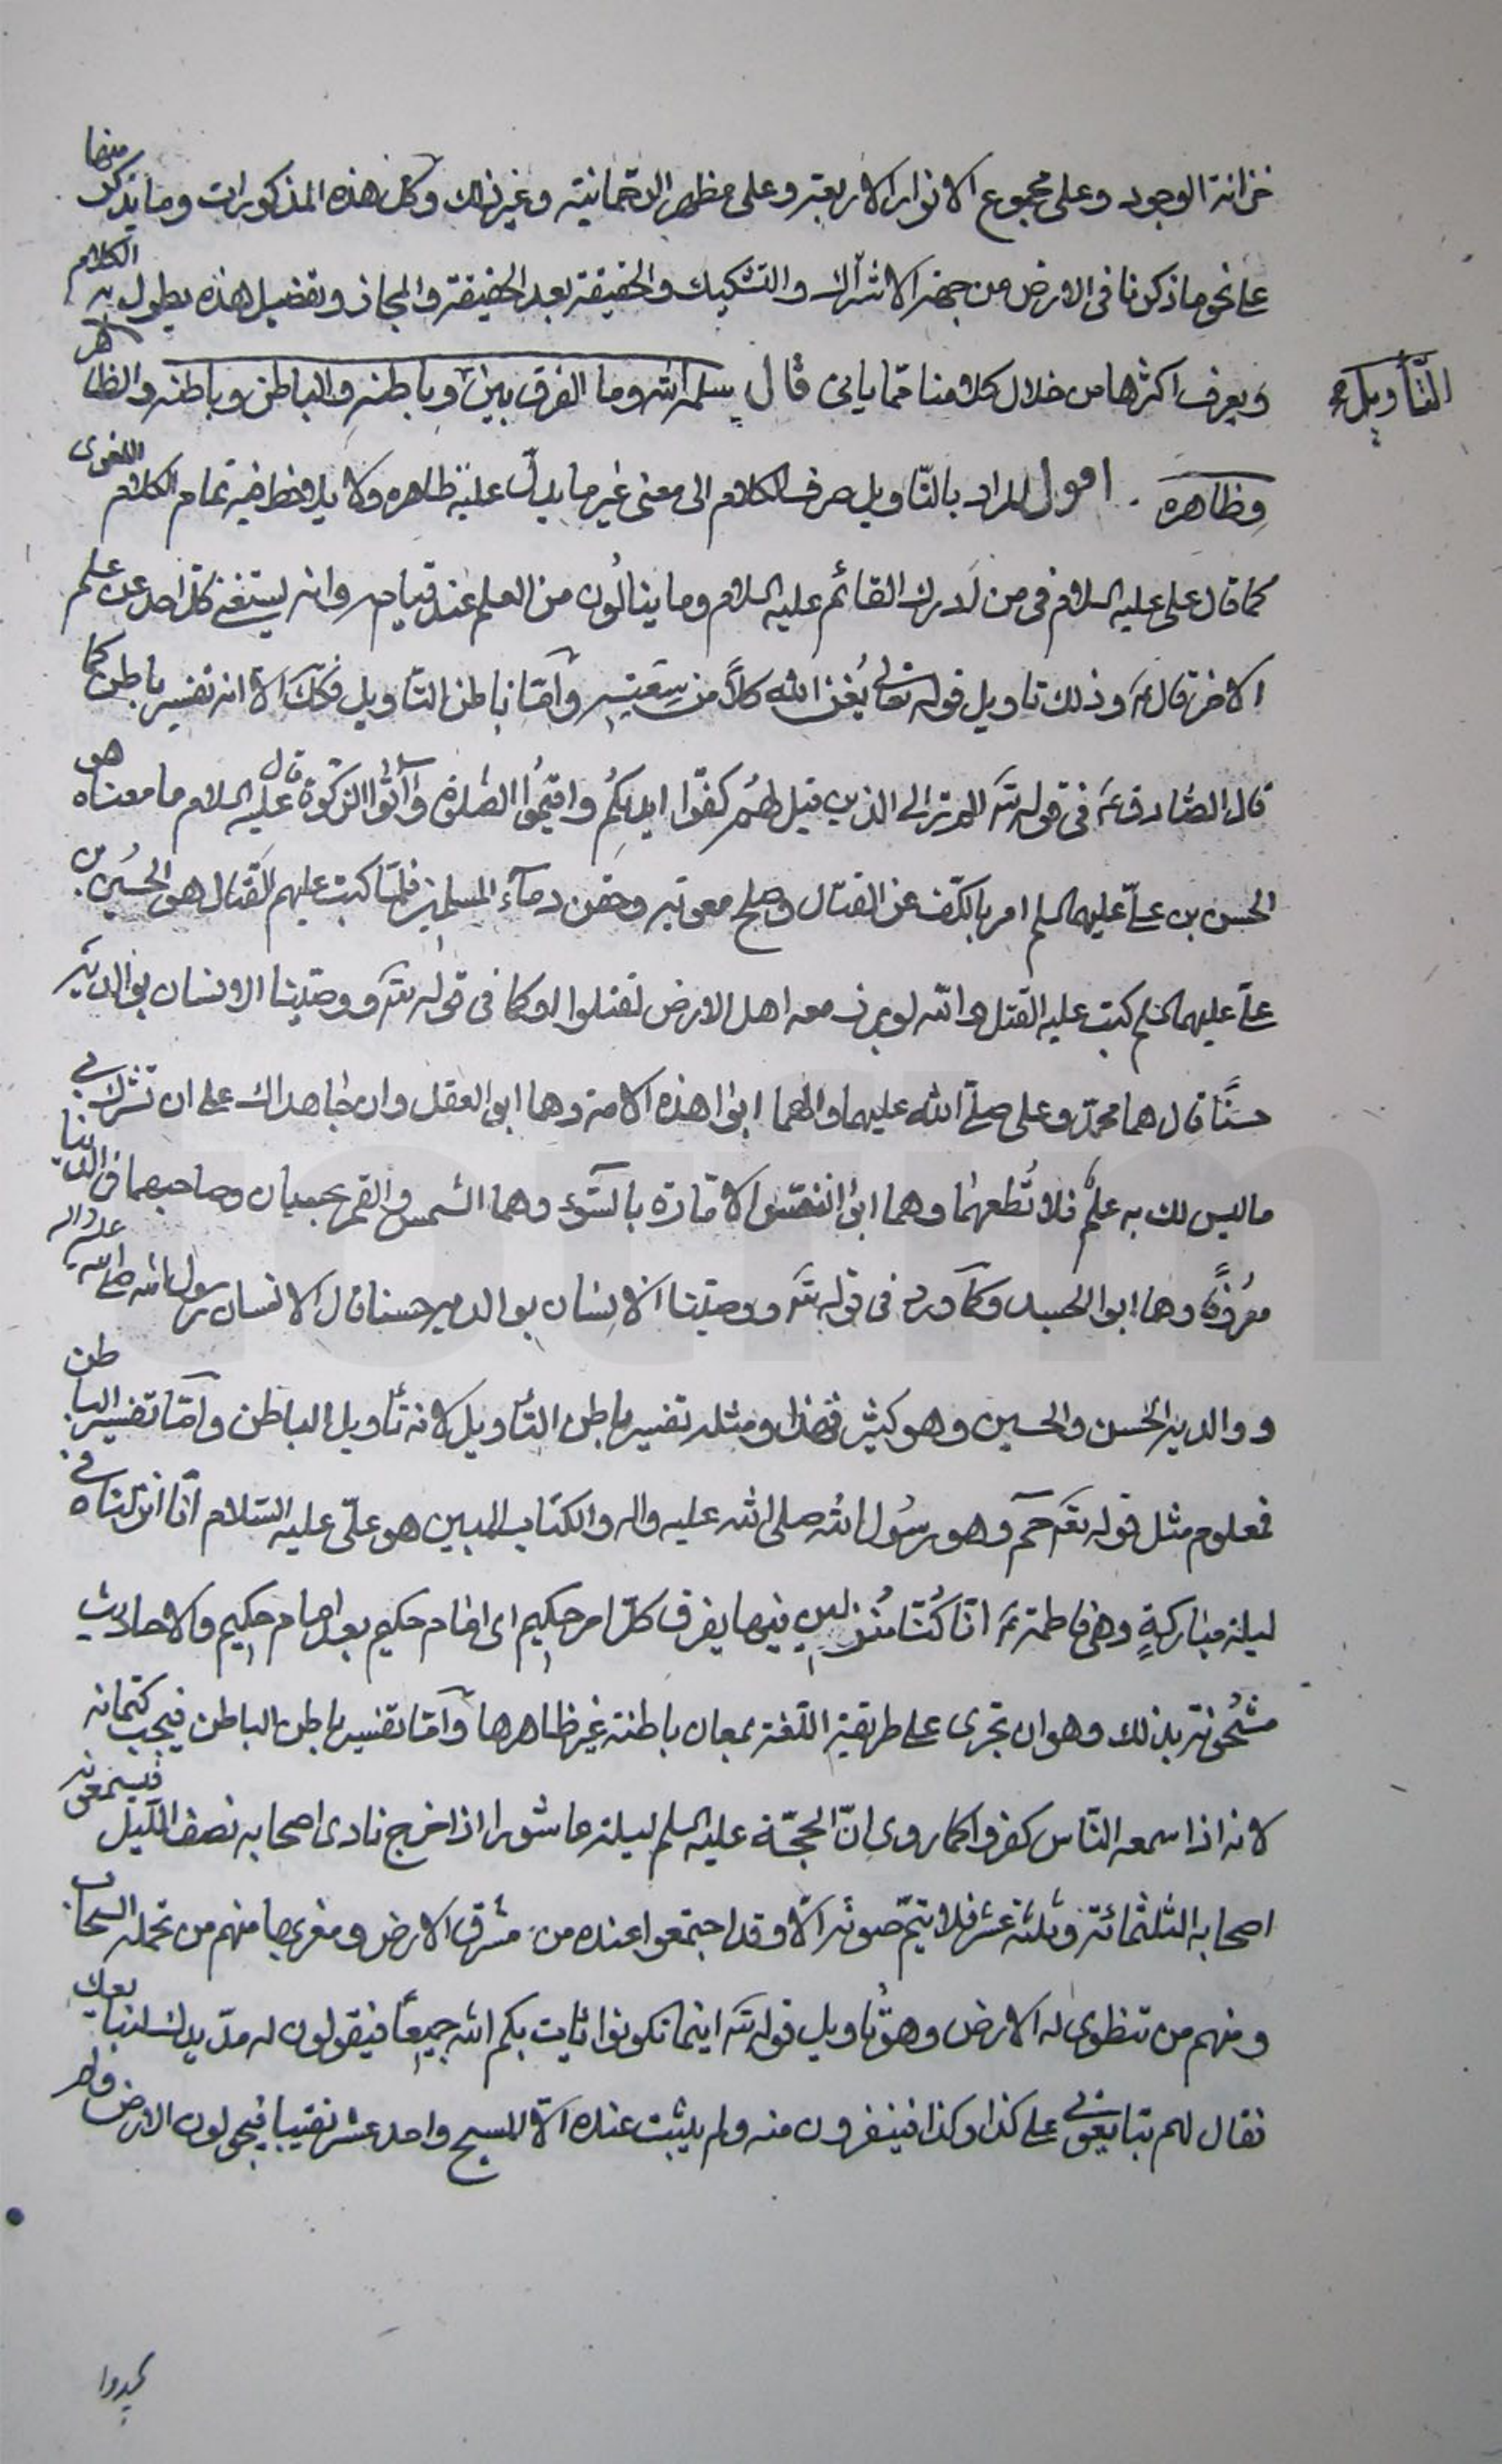 خزانة الوجود وعلى مجموع الانوار الاربعة وعلى مظهر الرحمانية وغير ذلك وكل هذه المذكورات وما يذكر منها
على نحو ما ذكرنا فى الارض من جهة الاشتراك والتشكيك والحقيقة بعد الحقيقة والمجاز وتفصيل هذه يطول به الكلام
ويعرف اكثرها من خلال كلامنا ممّا ياتى قال سلمه الله وما الفرق بين وباطنه والباطن وباطنه والظاهر
التّأويل
وظاهره . اقول المراد بالتّاويل صرف الكلام الى معنى غير ما يدلّ عليه ظاهره ولا يلاحظ فيه تمام الكلام اللغوى
كما قال على عليه السلام فى من يدرك القائم عليه السلام وما ينالون من العلم عند قيامه وانه ليستغنى كل احد عن علم
الاخر قال ع وذلك تاويل قوله تعالى يُغن الله كلاًّ من سَعَتِهِ وامّا باطن التّاويل فكذلك الّا انه تفسير باطن كما
قال الصّادق ع فى قوله تع الم تر الى الذين قيل لهُم كفّوا ايديكُم واقيمُوا الصّلوة وآتُوا الزكوة قال عليه السلام ما معناه هو
الحسن بن علىّ عليهما السلم امر بالكفّ عن القتال وصلح معوية وحقن دمآء المسلمين فلمّا كتب عليهم القتال هو الحُسين بن
علىّ عليهما السلم كتب عليه القتل والله لو برز معه اهل الارض لقتلوا وكما فى قوله تع ووصّينا الانسان بوالديه
حسنًا قال هما محمد وعلى صلّى الله عليهما والهما ابوا هذه الامة وهما ابوا العقل وان جاهداك على ان تشرك بى
ما ليس لك به علم فلا تُطعهُما وهما ابوا النفس الامّارة بالسّوء وهما الشمس والقمر بحسبان وصاحبهما فى الدنيا
معرُوفًا وهما ابوا الجسد وكما ورد فى قوله تع ووصّينا الانسان بوالديه حسنا قال الانسان رسول الله صلى الله عليه واله
ووالديه الحسن والحسين وهو كثير فهذا ومثله تفسير باطن التأويل لانه تأويل الباطن وامّا تفسير الباطن
فمعلوم مثل قوله تع حم وهو رسُول الله صلى الله عليه واله والكتاب المبين هو علىّ عليه السّلام انّا انزلناه فى
ليلة مباركةٍ وهى فاطمة ع انّا كُنّا مُنذرين فيها يفرق كلّ امر حكيم اى امام حكيم بعد امام حكيم والاحاديث
مشحُونة بذلك وهو ان تجرى على طريقة اللّغة بمعان باطنة غير ظاهرها وامّا تفسير باطن الباطن فيجب كتمانه
لانه اذا سمعه النّاس كفروا كما روى انّ الحجّة عليه السلم ليلة عاشورا اذا خرج نادى اصحابه نصف اللّيل فيسمعونه
اصحابه الثلثمائة وثلثة عشر فلا يتمّ صوته الّا وقد اجتمعوا عنده من مشرق الارض ومغربها منهم من تحمله السّحاب
ومنهم من تنطوى له الارض وهو تاويل قوله تع اينما تكونوا يأت بكم الله جميعًا فيقولون له مدّ يدك لنبايعك
فقال لهم تبايعونى على كذا وكذا فينفرون منه ولم يثبت عنده الّا المسيح واحد عشر نقيبا فيجولون الارض ولم
يجدوا